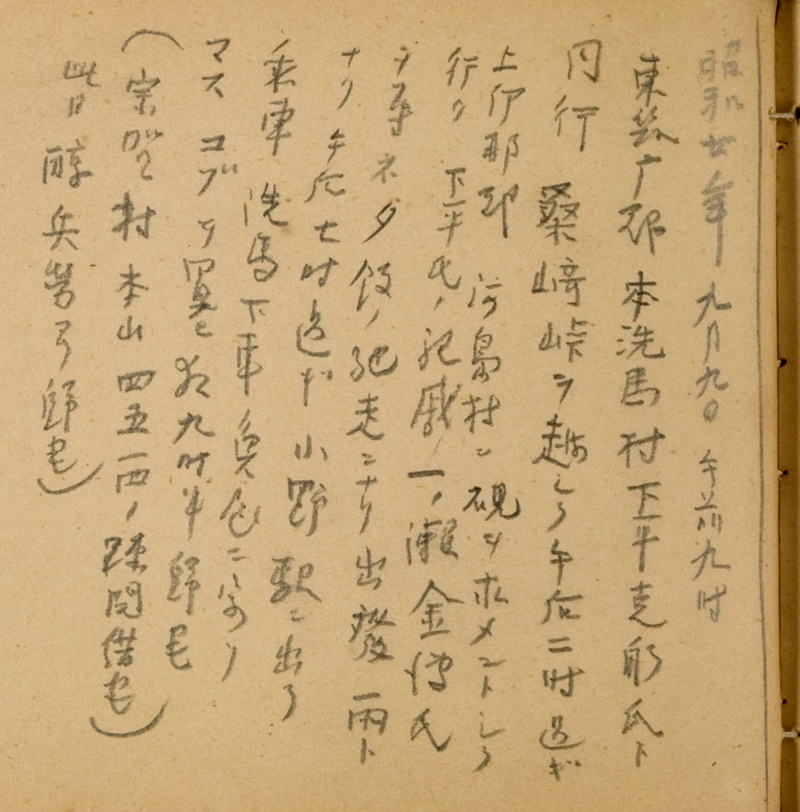 昭和廿年 九月九日 午前九時
東筑广郡 本洗馬村 下平克躬氏ト
同行 桑崎峠ヲ越シテ午后二時過ギ
上伊那郡 河島村ニ硯ヲ求メントシテ
行ク 下平氏ノ親戚ノ一ノ瀬金傳氏
ヲ尋ネ夕飯ノ馳走ニナリ出発 雨ト
ナリ午后七時過ギ 小野駅ニ出テ
乗車 洗馬下車 ニ寄リ
マス コブヲ買ヒ 九時半帰宅
(宗賀村 本山 四五一西ノ疎開借宅)
此日 醇兵労ヲ帰宅)